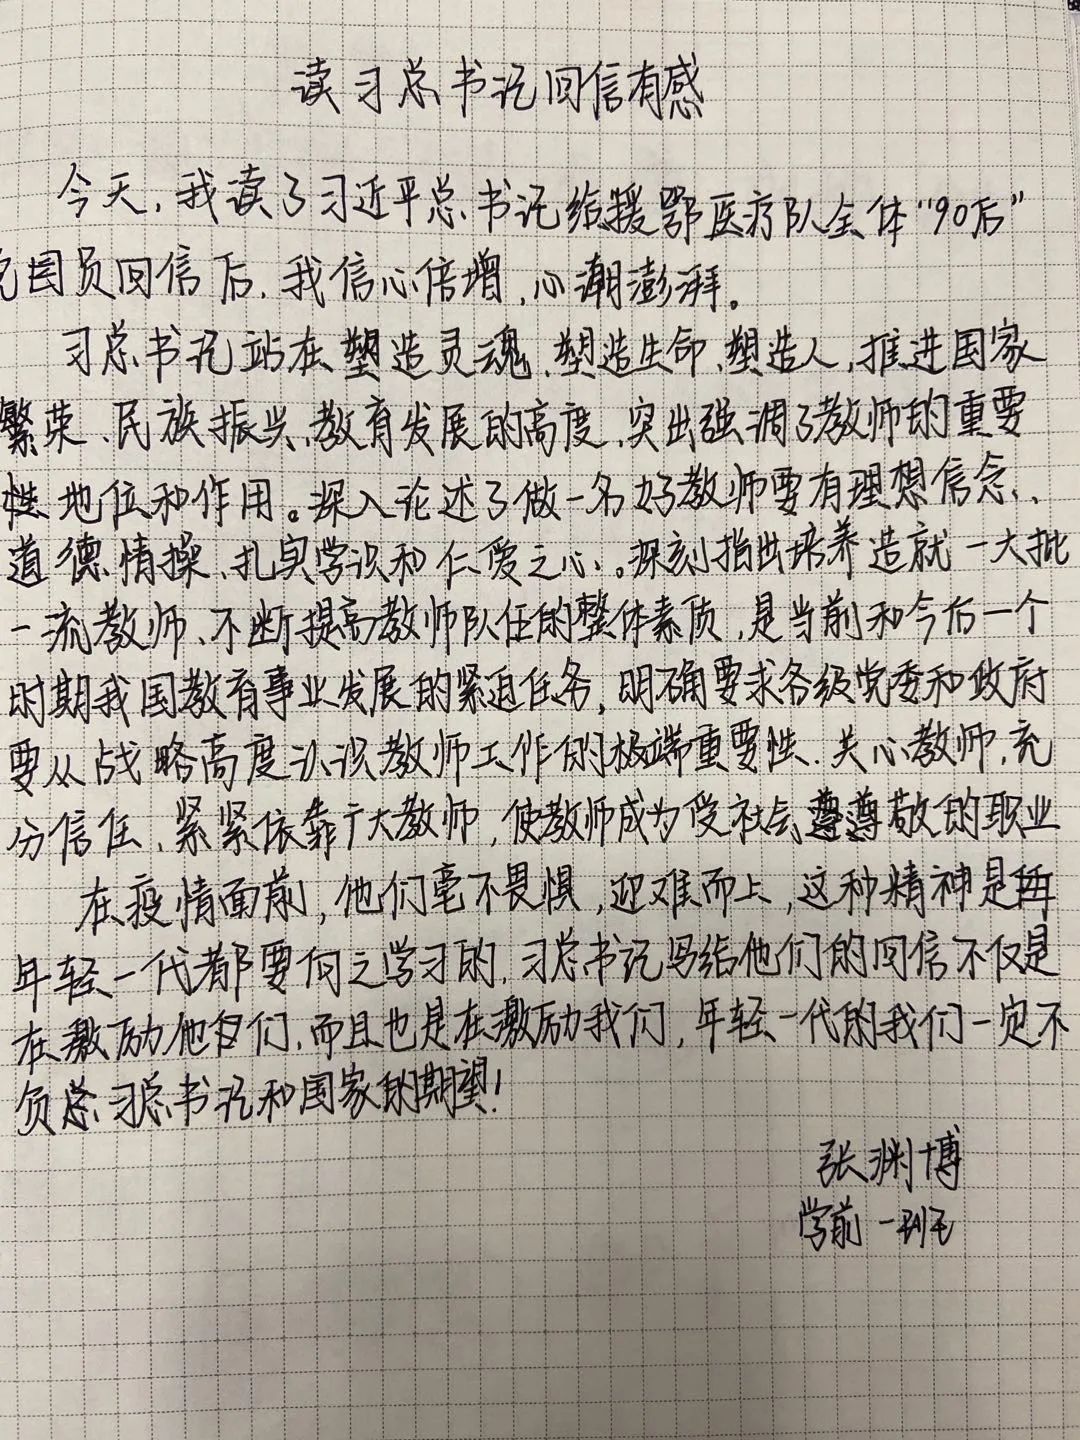 读习总书记回信有感
今天,我读了习近平总书记给援鄂医疗队全体“90后”
党团员回信后,我信心倍增,心潮澎湃。
习总书记站在塑造灵魂、塑造生命、塑造人,推进国家
繁荣、民族振兴、教育发展的高度,突出强调了教师的重要
性地位和作用。深入论述了做一名好教师要有理想信念、
道德情操、扎实学识和仁爱之心。深刻指出培养造就一大批
一流教师、不断提高教师队伍的整体素质,是当前和今后一个
时期我国教育事业发展的紧迫任务,明确要求各级党委和政府
要从战略高度认识教师工作的极端重要性、关心教师,充
分信任、紧紧依靠广大教师,使教师成为受社会尊敬的职业
在疫情面前,他们毫不畏惧,迎难而上,这种精神是
年轻一代都要向之学习的,习总书记写给他们的回信不仅是
在激励他们,而且也是在激励我们,年轻一代的我们一定不
负习总书记和国家的期望!
张渊博
学前一班